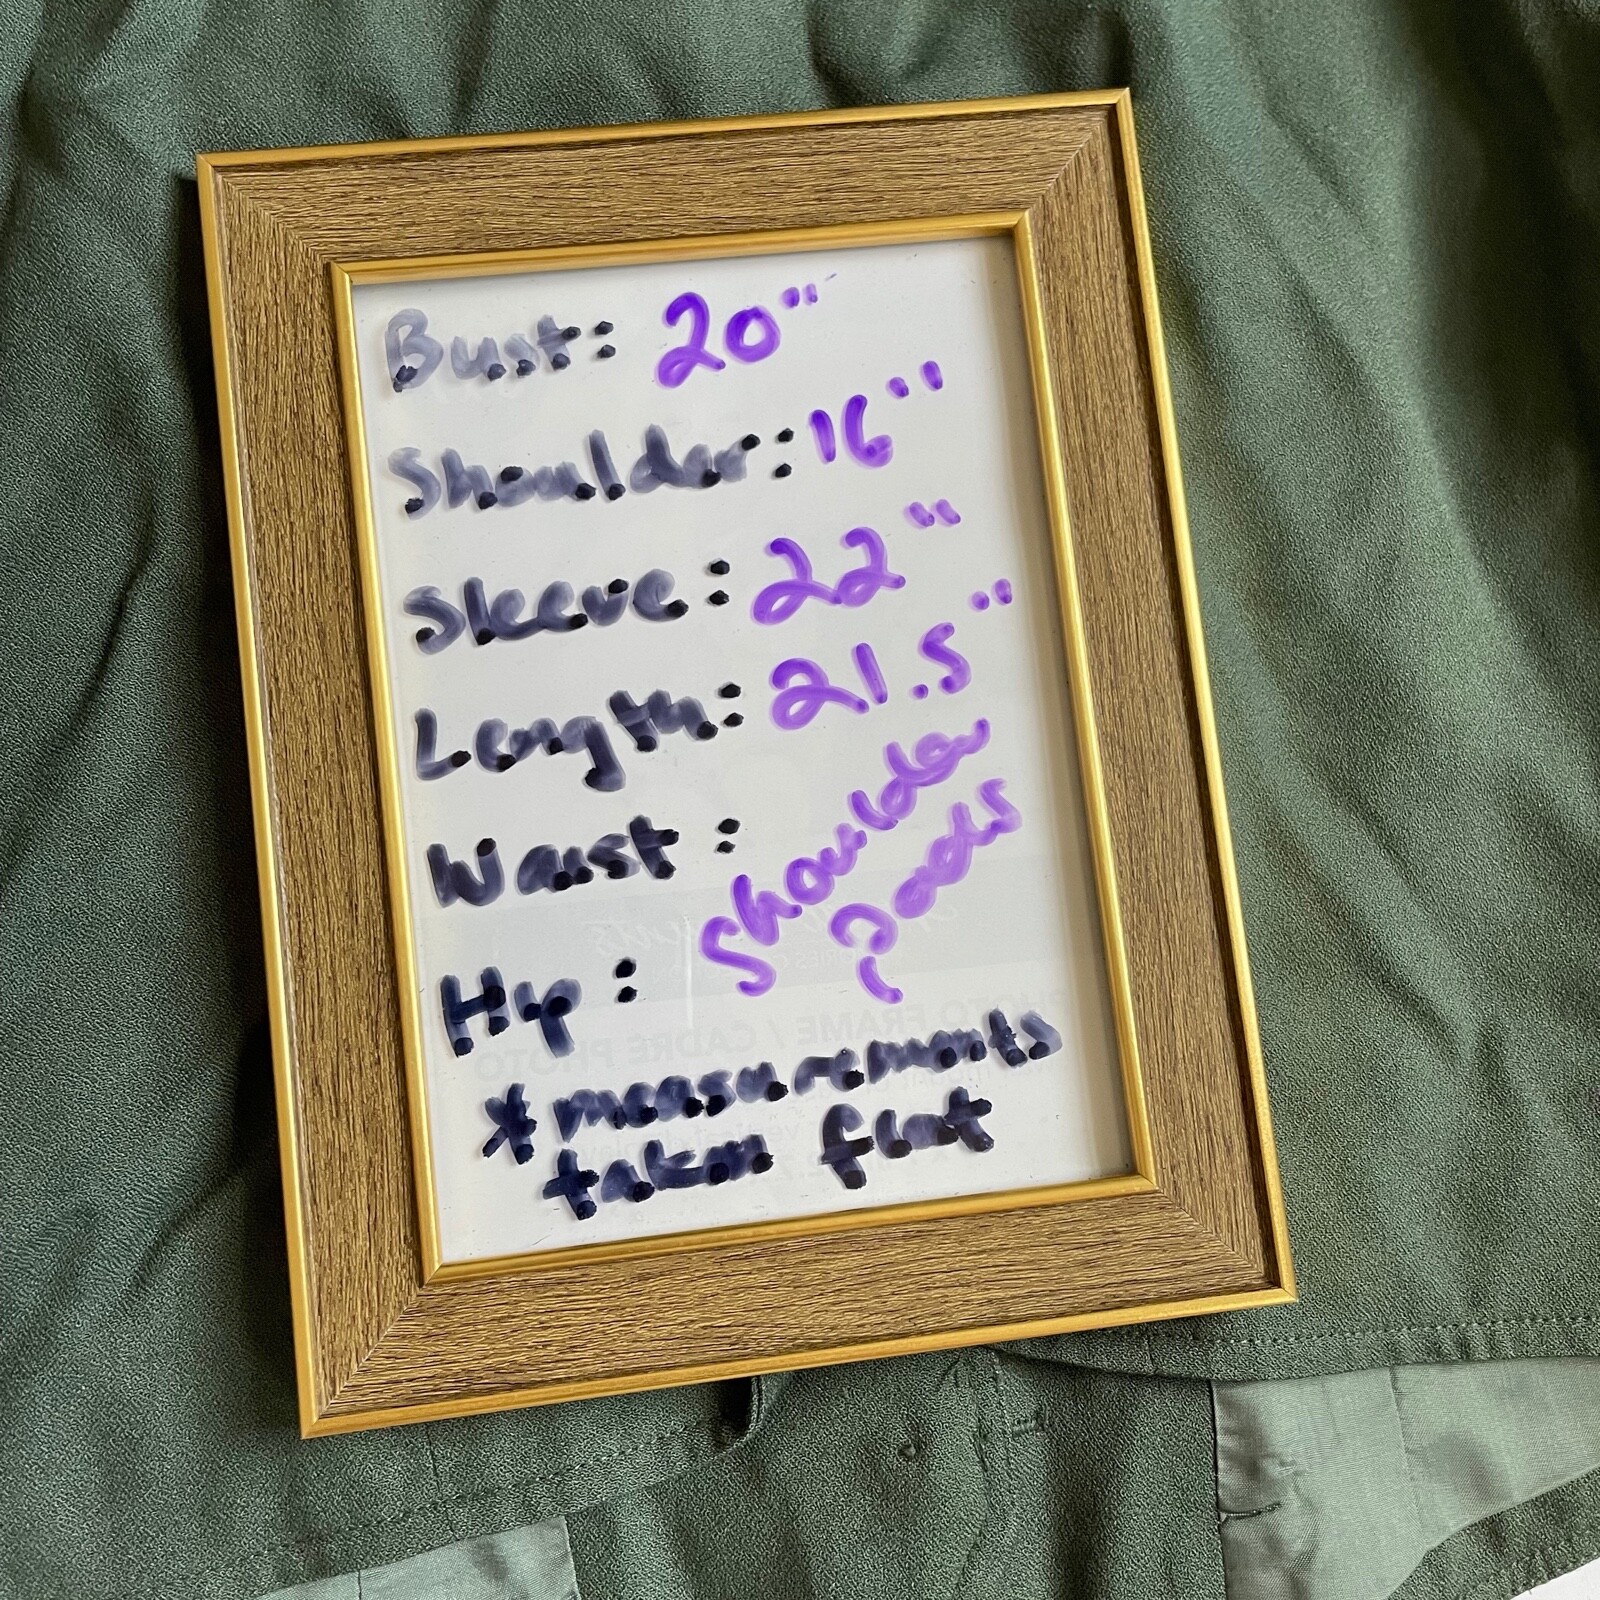 Bust: 20"
Shoulder: 16"
Sleeve: 22"
Length: 21.5"
Waist:
Shoulder
Pads
Hip:
*measurements
taken flat
PHOTO FRAME / CADRE PHOTO